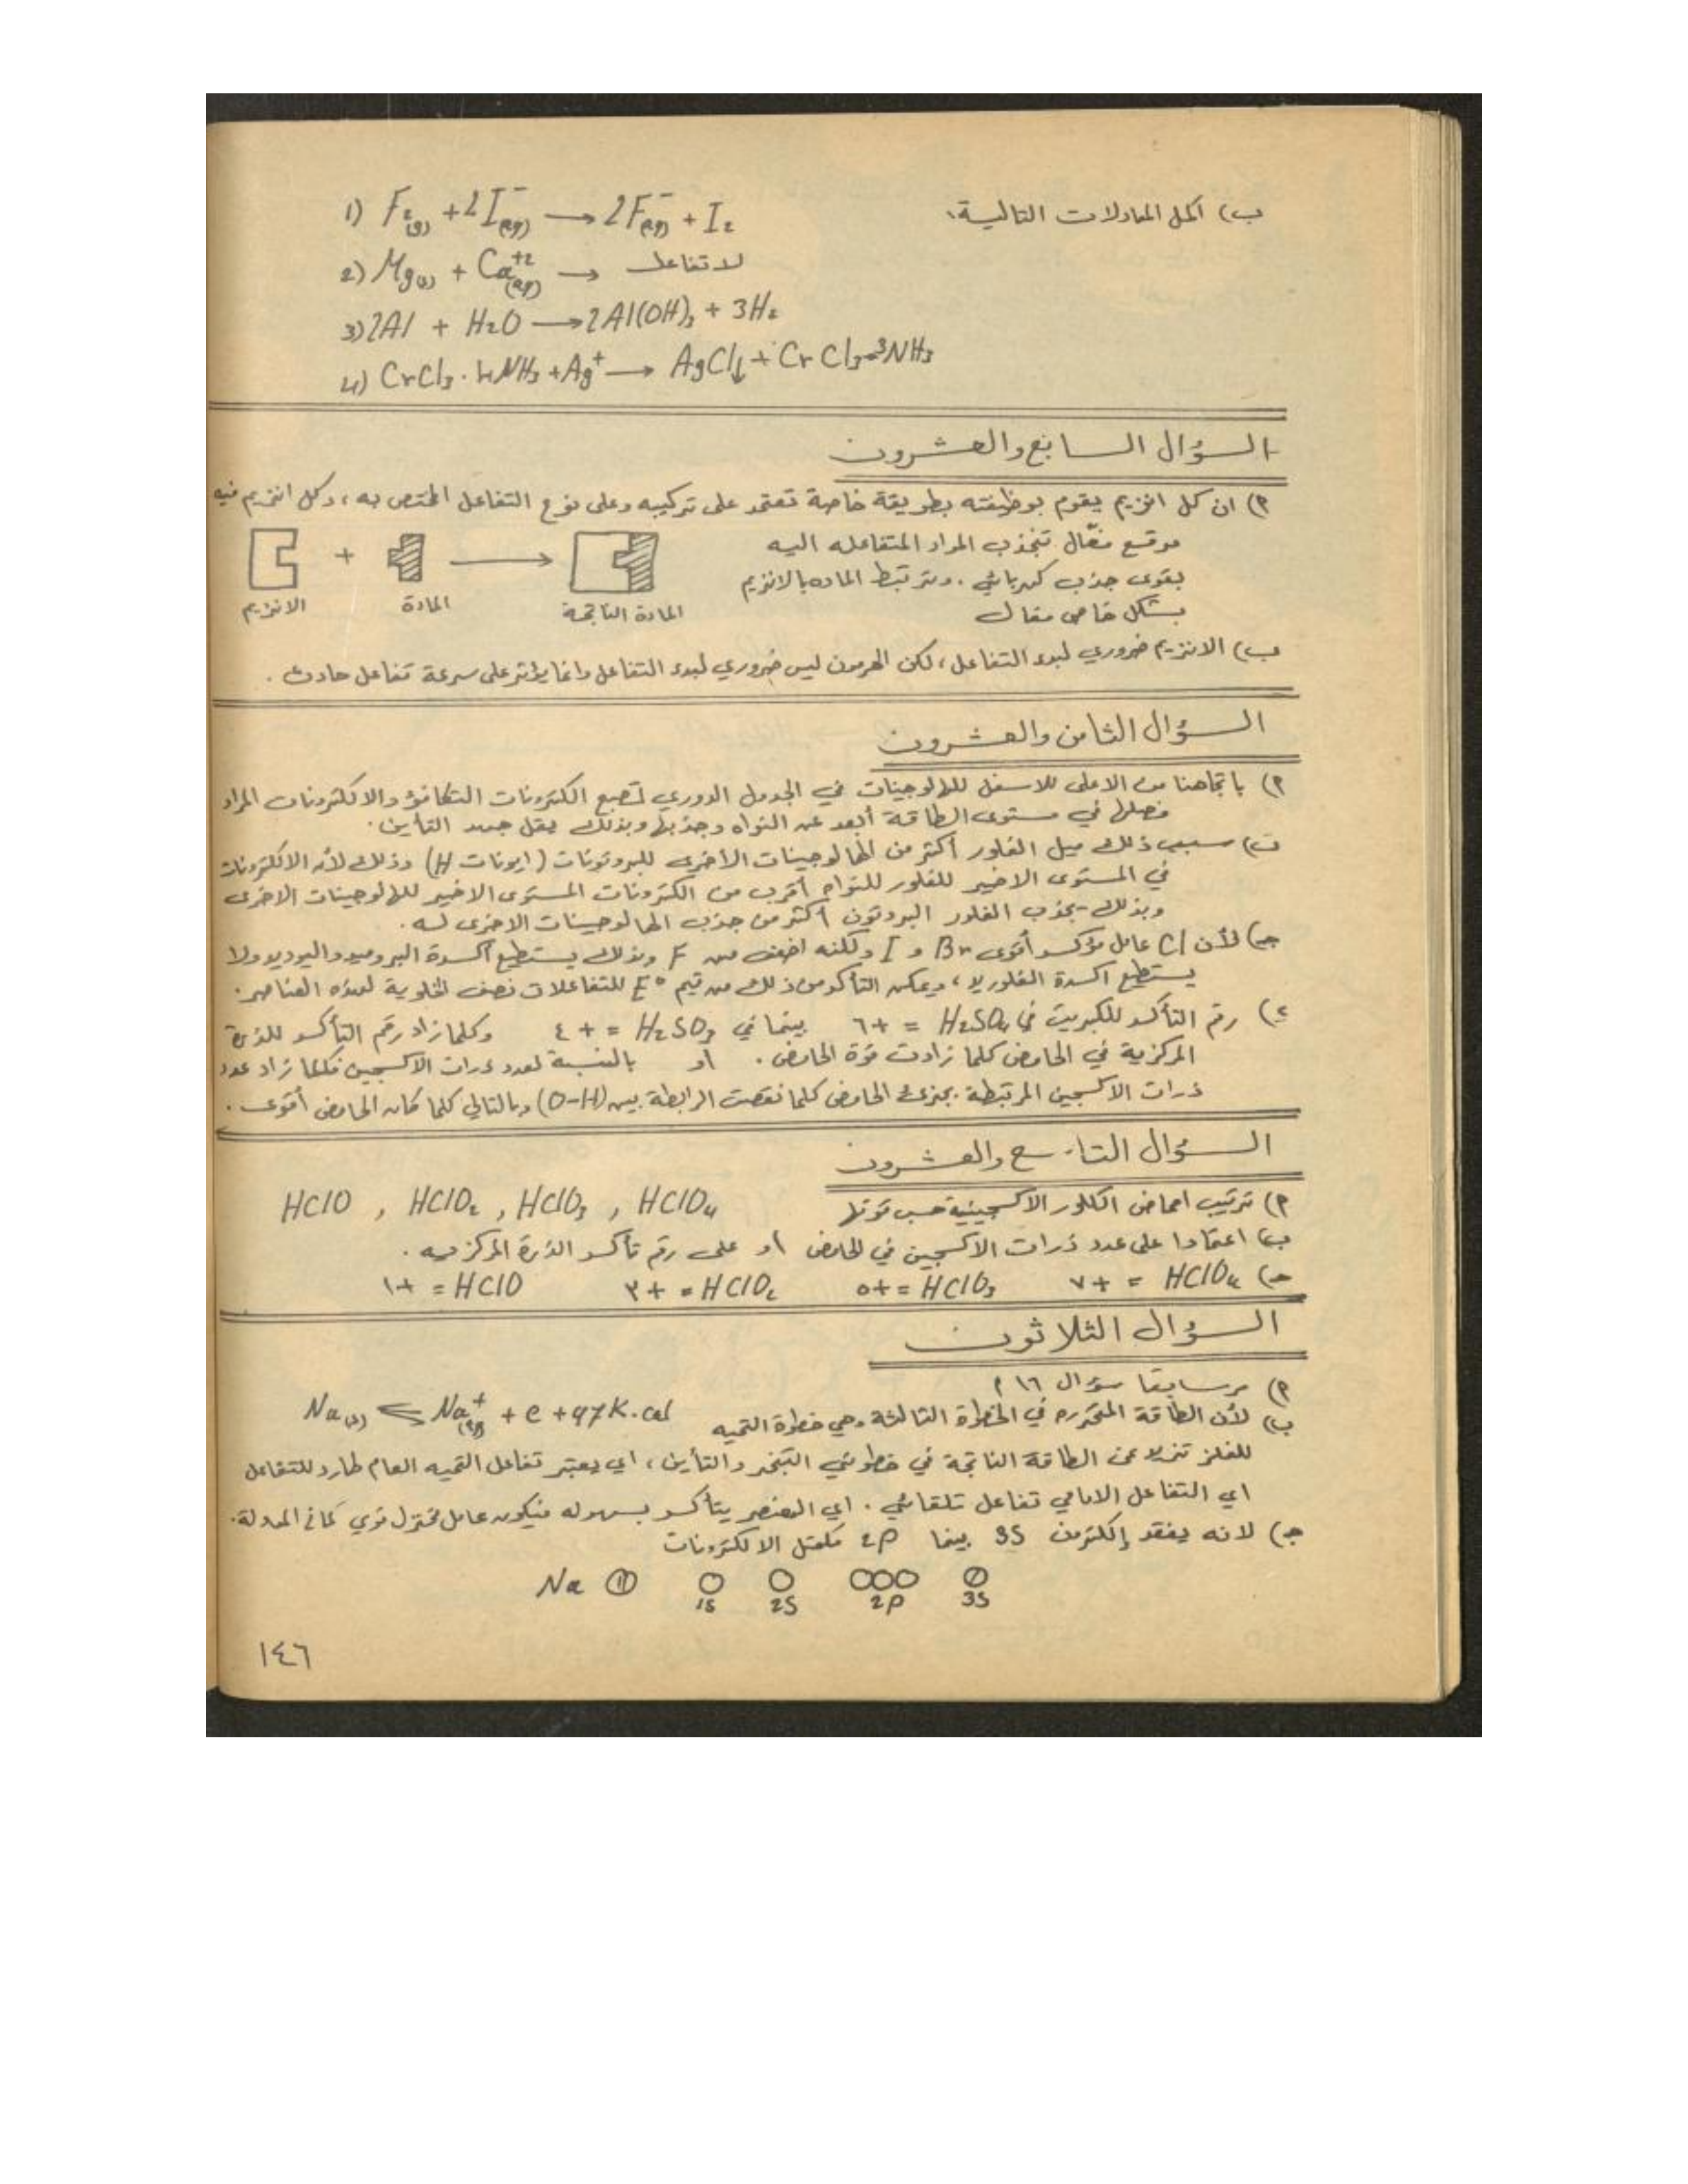 ب) اكمل المعادلات التالية:
1) F₂(g) + 2I⁻(aq) → 2F⁻(aq) + I₂
2) Mg(s) + Ca⁺²(aq) → لا تفاعل
3) 2Al + H₂O → 2Al(OH)₃ + 3H₂
4) CrCl₃·4NH₃ + Ag⁺ → AgCl↓ + CrCl₃·3NH₃
السؤال السابع والعشرون
٢) ان كل انزيم يقوم بوظيفته بطريقة خاصة تعتمد على تركيبه وعلى نوع التفاعل المختص به، وكل انزيم فيه
موقع فعّال تنجذب المواد المتفاعله اليه
بقوى جذب كهربائي. وترتبط الماده بالانزيم
بشكل خاص
الانزيم + المادة → المادة الناتجة
ب) الانزيم ضروري لبدء التفاعل، لكن الهرمون ليس ضروري لبدء التفاعل وانما يؤثر على سرعة تفاعل حادث.
السؤال الثامن والعشرون
٢) باتجاهنا من الاعلى للاسفل للهالوجينات في الجدول الدوري تصبح الكترونات التكافؤ والالكترونات المراد
فصلها في مستوى الطاقة أبعد عن النواه وجذبها وبذلك يقل جهد التأين.
ب) سبب ذلك ميل الفلور أكثر من الهالوجينات الأخرى للبروتونات (ايونات H) وذلك لأن الالكترونات
في المستوى الاخير للفلور للنواه أقرب من الكترونات المستوى الاخير للهالوجينات الاخرى
وبذلك يجذب الفلور البروتون أكثر من جذب الهالوجينات الاخرى له.
ج) لأن Cl عامل مؤكسد أقوى Br و I ولكنه اضعف من F وبذلك يستطيع أكسدة البروميد واليوديد ولا
يستطيع اكسدة الفلوريد، ويمكن التأكد من ذلك من قيم E° للتفاعلات نصف الخلوية لهذه العناصر.
د) رقم التأكسد للكبريت في H₂SO₄ = +٦ بينما في H₂SO₃ = +٤ وكلما زاد رقم التأكسد للذرة
المركزية في الحامض كلما زادت قوة الحامض. أو بالنسبة لعدد ذرات الاكسجين فكلما زاد عدد
ذرات الاكسجين المرتبطة بجزئ الحامض كلما نقصت الرابطة بين (O-H) وبالتالي كلما كان الحامض أقوى.
السؤال التاسع والعشرون
٢) ترتيب احماض الكلور الاكسجينية حسب قوتها HClO , HClO₂ , HClO₃ , HClO₄
ب) اعتمادا على عدد ذرات الاكسجين في الحامض أو على رقم تأكسد الذرة المركزيه.
ج) HClO₄ = +٧ HClO₃ = +٥ HClO₂ = +٣ HClO = +١
السؤال الثلاثون
٢) مر سابقا سؤال ١٦ ٢
ب) لأن الطاقة المتحرره في الخطوة الثالثة وهي خطوة التميه Na(s) ⇌ Na⁺(aq) + e + 97 K.cal
للفلز تزيد عن الطاقة الناتجة في خطوتي التبخر والتأين، اي يعتبر تفاعل التميه العام طارد للتفاعل
اي التفاعل الامامي تفاعل تلقائي. اي العنصر يتأكسد بسهوله فيكون عامل مختزل قوي كما في المعادلة.
ج) لانه يفقد إلكترون 3S بينما 2P مكتمل الالكترونات
Na ⑪ 1S 2S 2P 3S
١٤٦